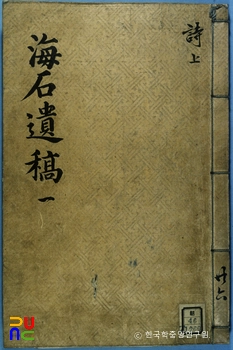 海石遺稿 一
詩上
廾六
ⓒ 한국학중앙연구원